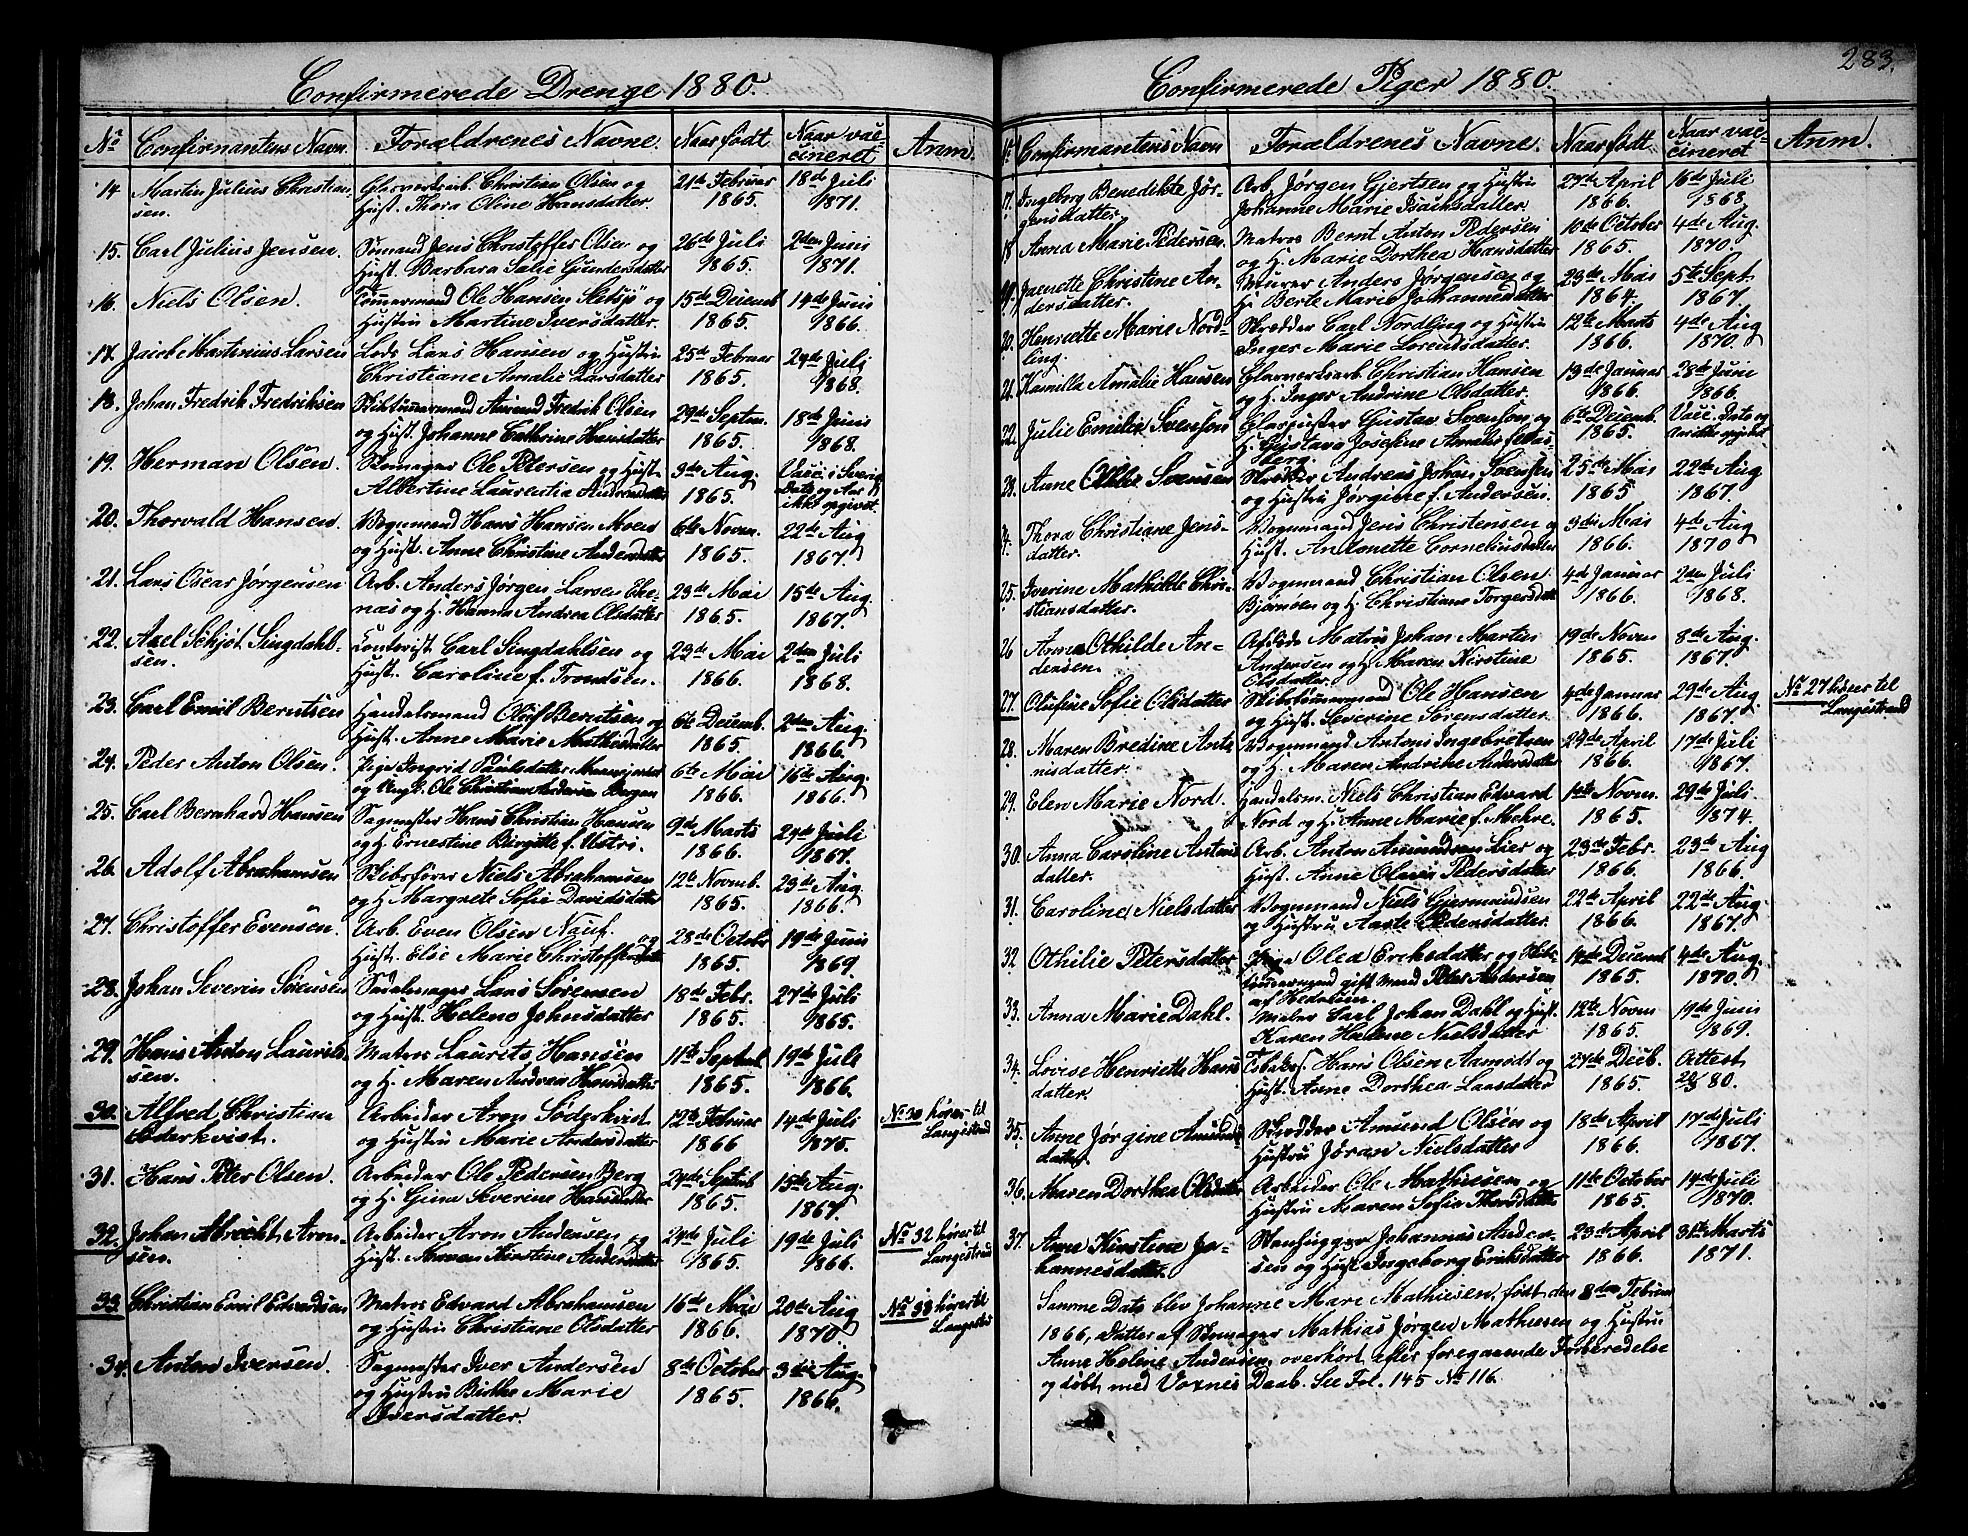 283.
Confirmerede Drenge 1880.
No Confirmantens Navn. Forældrenes Navne. Naar født Naar vaccineret Anm.
14 Martin Julius Christian- Glarverksarb. Christian Olsen og 21de Februar 18de Juli
sen. Hust. Thora Oline Hansdatter. 1865. 1871.
15. Carl Julius Jensen. Sømand Jens Christoffer Olsen og 26de Juli 2den Juni
Hust. Barbara Salie Gundersdatter 1865. 1871.
16. Niels Olsen. Tømmermand Ole Hansen Setsjø og 15de Decemb 14de Juni
Hustru Martine Iversdatter. 1865. 1866.
17. Jacob Martinius Larsen Lods Lars Hansen og Hustru 25de Februar 29de Juli
Christiane Amalie Larsdatter 1865. 1868.
18. Johan Fredrik Fredriksen Skibstømmermand Amund Fredrik Olsen 29de Septm. 18de Juni
og Hust. Johanne Cathrine Hansdatter 1865. 1868.
19. Herman Olsen. Skomager Ole Petersen og Hust. 3de Aug. Vacc. i Sverig
Albertine Laurentia Andersdatter 1865. Dato og Aar ikke opgivet.
20. Thorvald Hansen. Vognmand Hans Hansen Moen 6te Novem. 22de Aug
og Hust. Anne Christine Andersdatter 1865. 1867.
21. Lars Oscar Jørgensen Arb. Anders Jørgen Larsen Eke- 23de Mai 15de Aug.
næs og H. Hanna Andrea Olsdatter 1865. 1867.
22. Axel Schjøt Singdahl- Contorist Carl Singdahlsen og 23de Mai 2den Juli
sen. Hust. Caroline f. Trondsen. 1866. 1868.
23. Carl Emil Berntsen Handelsmand Oluf Berntsen og 6te Decemb. 2den Aug.
Hust. Anne Marie Mathisdatter 1865. 1866.
24. Peder Anton Olsen. Pige Ingrid Paulsdatter 6te Mai 16de Aug.
og Ungk. Ole Christian Andersen Bergan 1866. 1866.
25. Carl Bernhard Hansen Sagmester Hans Christian Hansen 9de Marts 29de Juli
og H. Ernestine Birgitte f. Ustri. 1866. 1867.
26. Adolf Abrahamsen Skibsfører Niels Abrahamsen 12te Novemb. 23de Aug.
og H. Margrete Sofie Davidsdatter 1865. 1866.
27. Christoffer Evensen. Arb. Even Olsen Nauf. og 28de October 19de Juni
Hust. Else Marie Christoffersdatter 1865. 1869.
28. Johan Severin Sørensen Sadelmager Lars Sørensen 18de Febr. 27de Juli
og Hust. Helene Johnsdatter 1865. 1865.
29. Hans Anton Laurits- Matros Laurits Hansen 11te Septbr 19de Juli
sen. og H. Maren Andrea Hansdatter 1865. 1866.
30. Alfred Christian Arbeider Aron Söderkvist 12te Februar 14de Juli No 30 hører til
Söderkvist. og Hustru Marie Andersdatter 1866 1870. Langestrand
31. Hans Peter Olsen. Arbeider Ole Pedersen Berg 24de Septbr 15de Aug.
og H. Gina Severine Hansdatter 1865. 1867.
32. Johan Albrecht Aron- Arbeider Aron Andersen og 24de Juli 19de Juli No 32 hører til
sen. Hust. Maren Kirstine Andersdatter 1865. 1866. Langestrand
33 Christian Emil Edvardsen Matros Edvard Abrahamsen 16de Mai 20de Aug No 33 hører til
og Hustru Christiane Olsdatter 1866. 1870. Langestrd
34. Anton Iversen. Sagmester Iver Andersen 8de October 3die Aug.
og Hustru Birthe Marie 1865. 1866.
Iversdatter.
Confirmerede Piger 1880.
No Confirmantens Navn Forældrenes Navne. Naar født Naar vaccineret Anm.
17. Ingeborg Benedikte Jør- Arb. Jørgen Gjertsen og Hustru 27de April 16de Juli
gensdatter. Johanne Marie Isachsdatter 1866. 1868.
18 Anna Marie Pedersen. Matros Bernt Anton Pedersen 10de October 4de Aug.
og H. Marie Dorthea Hansdatter 1865. 1870.
19. Janette Christine An- Murer Anders Jørgensen og 23de Mai 5te Sept
dersdatter. H. Berte Marie Johannesdatter 1864. 1867.
20. Henriette Marie Nord- Skrædder Carl Nordling og Hustru 12te Marts 4de Aug
ling. Inger Marie Lorentsdatter. 1866. 1870.
21. Kamilla Amalie Hansen Glarverksarb. Christian Hansen 19de Januar 28de Juni
og H. Inger Andrine Olsdatter. 1866. 1866.
22. Julie Emelie Svenson Glaspuster Gustav Svenson og 6te Decemb. Vacc. Dato og
H. Gustava Josefine Amalie 1865. Aar ikke opgivet.
23. Anne Othilie Svensen Skrædder Andreas Johan Svensen 25de Mai 22de Aug
og Hustru Jørgine f. Andersen. 1865 1867.
24. Thora Christiane Jens- Vognmand Jens Christensen og 3die Mai 4de Aug
datter. Hust. Antonette Corneliusdatter 1866. 1870
25. Iverine Mathilde Chri- Vognmand Christian Olsen 4de Januar 2den Juli
stiansdatter. Bjørnøen og H. Christiane Torgersdatter 1866. 1868.
26 Anna Othilde An- Afdøde Matros Johan Martin 19de Novem 8de Aug.
dersen. Andersen og H. Maren Kirstine 1865. 1867.
Olsdatter.
27. Olufine Sofie Olsdatter Skibstømmermand Ole Hansen 4de Januar 29de Aug. No 27 hører til
og Hust. Severine Sørensdatter. 1866. 1867. Langestrand
28. Maren Bredine Anto- Vognmand Antoni Ingebretsen 24de April 17de Juli
nisdatter. og H. Maren Andrine Andersdatter 1866. 1867.
29. Elen Marie Nord. Handelsm. Niels Christian Edvard Novem. 29de Juli
Nord og H. Anne Marie f. Mehre. 1865. 1874.
30. Anna Caroline Antons Arb. Anton Amundsen Lier og 23de Febr. 23de Aug
datter. Hust. Anne Olava Pedersdatter 1866. 1866.
31. Caroline Nielsdatter Vognmand Niels Gjermundsen 22de April 22de Aug.
og Hustru Aaste Pedersdatter. 1866. 1867.
32 Othilie Petersdatter Pige Olea Eriksdatter og Skibs- 14de Decemb 4de Aug.
tømmermand gift Mand Peter Andersen 1865. 1870.
af Hedrum.
33. Anna Marie Dahl. Maler Carl Johan Dahl og Hust. 12te Novem 19de Juni
Karen Helene Nielsdatter 1865. 1869.
34. Lovise Henriette Hans Hans Olsen Aamodt og 27de Decb. Attest
datter. Hust. Anne Dorthea Larsdatter 1865. 80.
35. Anne Jørgine Amunds Skrædder Amund Olsen og 18de April 17de Juli
datter. Hustru Jøran Nielsdatter 1866. 1867.
36. Maren Dorthea Olsdatter Arbeider Ole Mathiesen og 11te October 14de Juli
Hustru Maren Sofie Thorsdatter 1865. 1870.
37. Anna Kirstine Jo- Stenhugger Johannes Ander- 23de April 31te Marts
hannesdatter. sen og Hust. Ingeborg Eriksdatter 1866. 1871.
Samme Dato blev Johanne Marie Mathiesen, født den 8den Februar
1866, Datter af Skomager Mathias Jørgen Mathiesen og Hustru
Anne Helene Andersen, overhørt efter foregaaende Forberedelse
og døbt med Voxnes Daab. See Fol. 145 No 116.